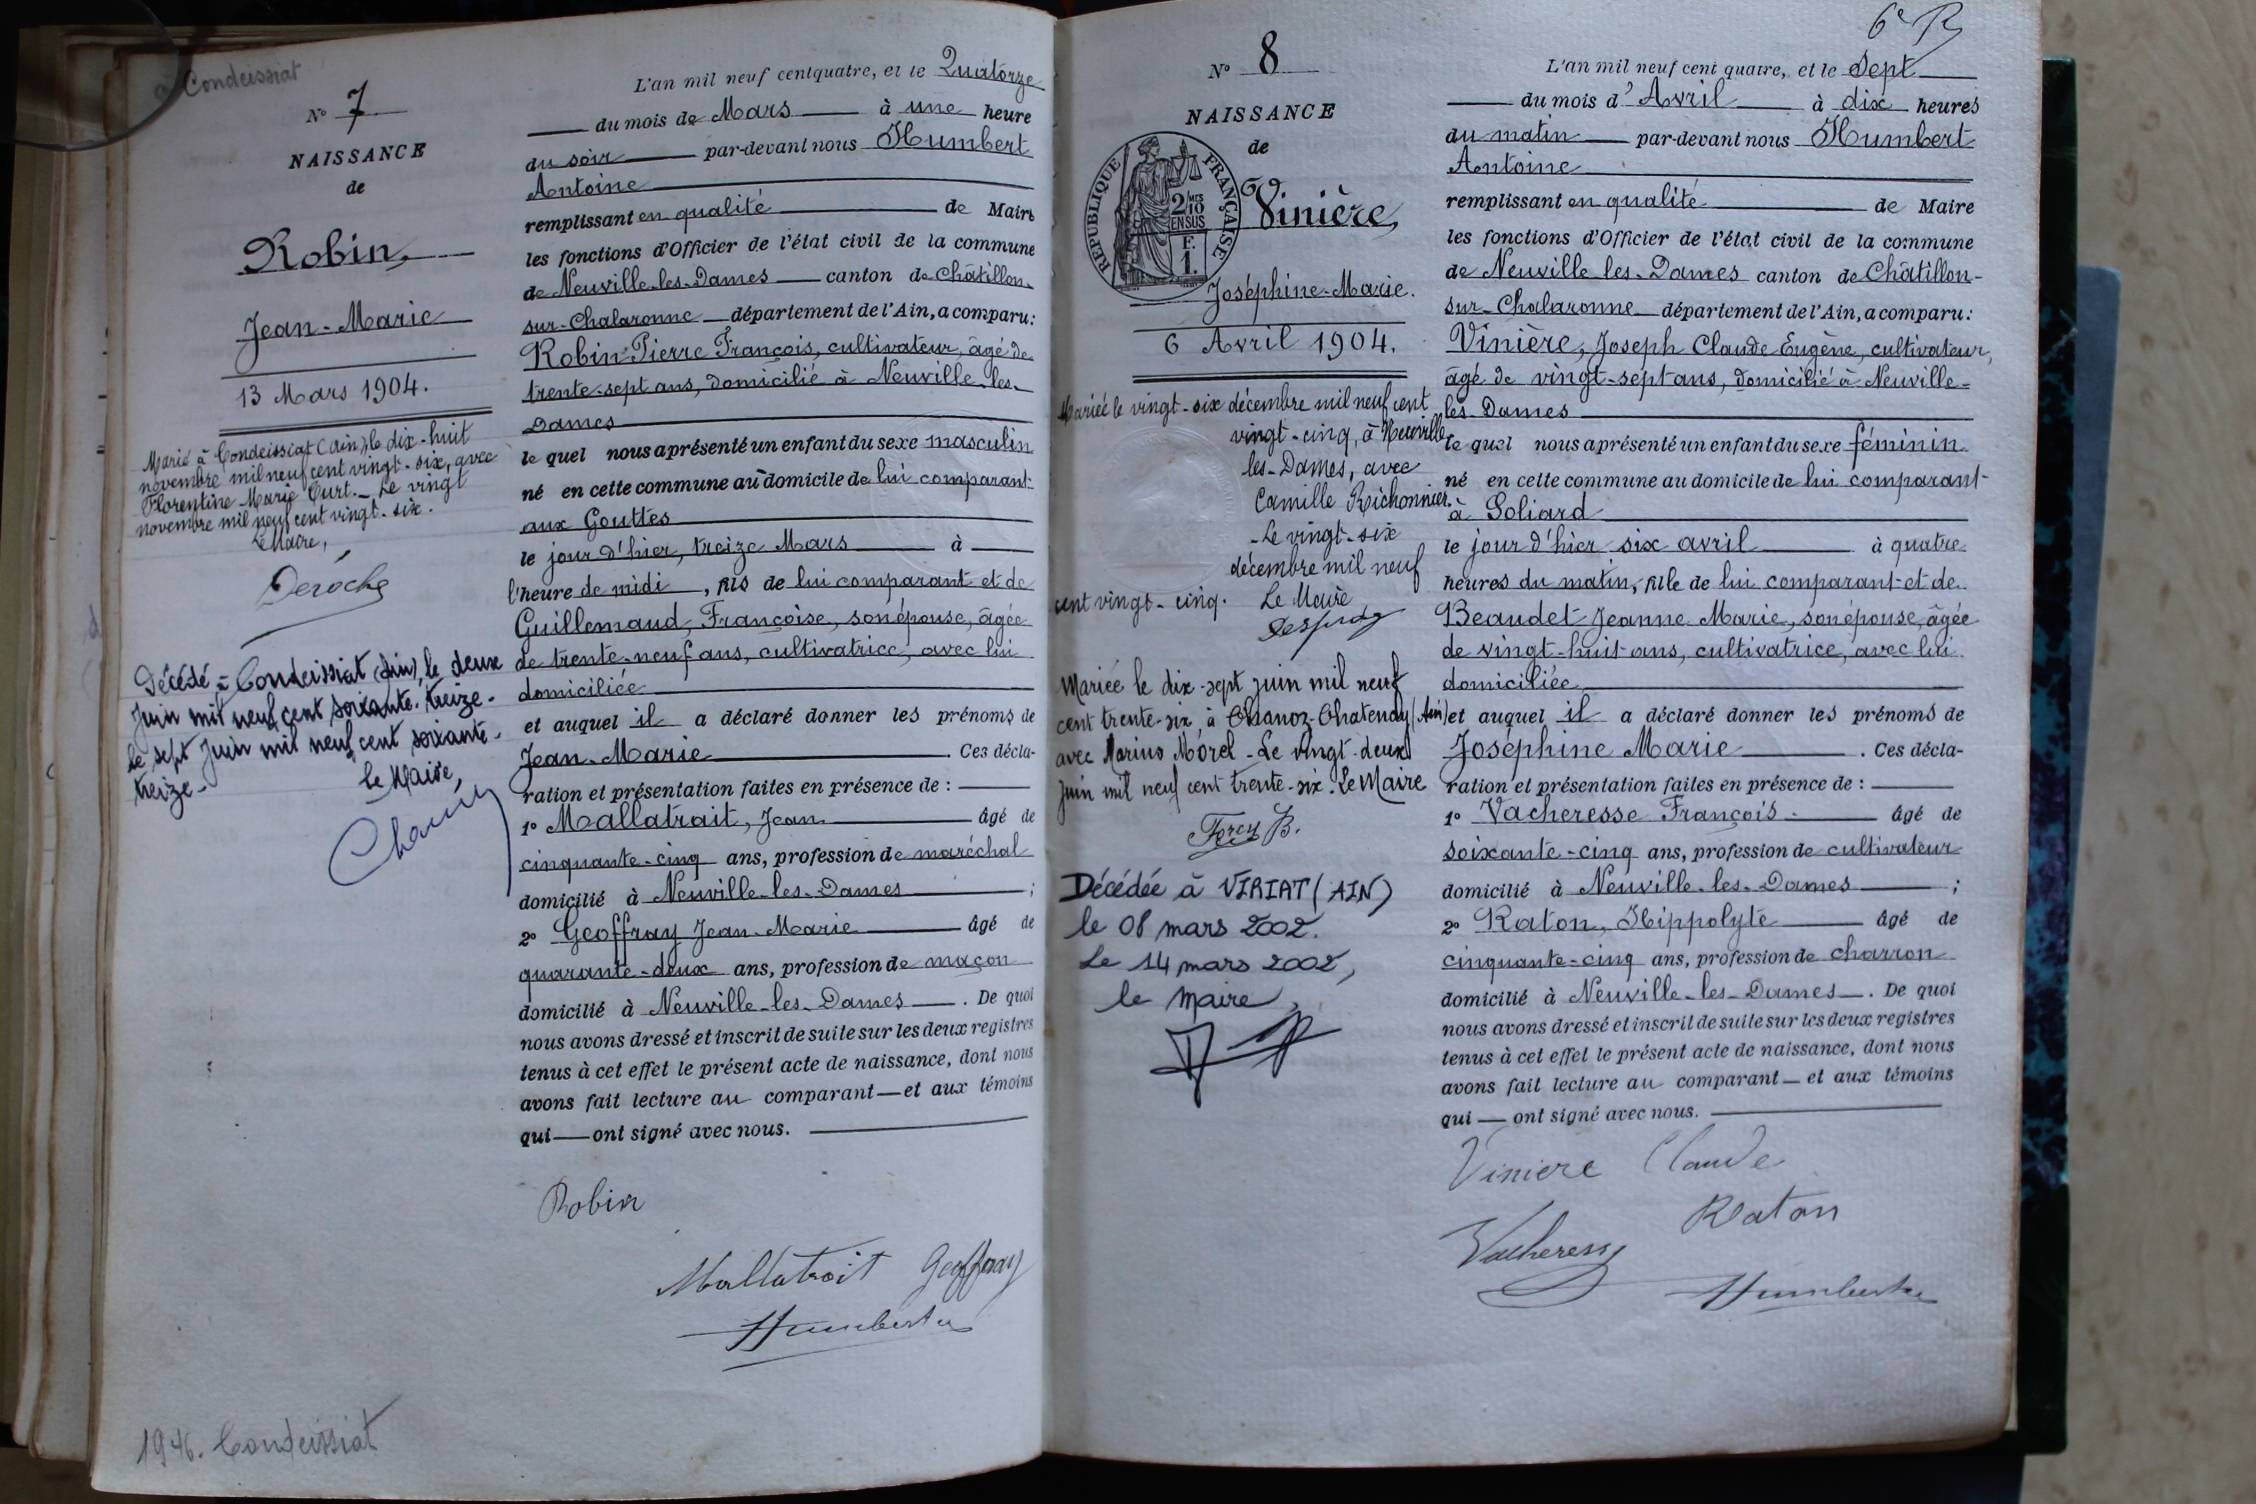 a Condeissiat
N° 7
NAISSANCE
de
Robin,
Jean-Marie
13 Mars 1904.
Marié à Condeissiat (Ain), le dix-huit
novembre mil neuf cent vingt-six, avec
Florentine Marie Curt._ Le vingt
novembre mil neuf cent vingt-six.
Le Maire,
Deroche
Décédé à Condeissiat (Ain), le deux
Juin mil neuf cent soixante-treize.
le sept Juin mil neuf cent soixante-
treize-
le Maire,
1946. Condeissiat
L'an mil neuf cent quatre, et le Quatorze
du mois de Mars à une heure
du soir par-devant nous Humbert
Antoine
remplissant en qualité de Maire
les fonctions d'Officier de l'état civil de la commune
de Neuville-les-Dames canton de Châtillon-
sur-Chalaronne département de l'Ain, a comparu:
Robin Pierre François, cultivateur, âgé de
trente-sept ans, domicilié à Neuville-les-
Dames
le quel nous a présenté un enfant du sexe masculin
né en cette commune au domicile de lui comparant
aux Gouttes
le jour d'hier, treize Mars à
l'heure de midi, fils de lui comparant et de
Guillemaud, Françoise, son épouse, âgée
de trente-neuf ans, cultivatrice, avec lui
domiciliée
et auquel il a déclaré donner les prénoms de
Jean-Marie. Ces décla-
ration et présentation faites en présence de :
1° Mallatrait, Jean âgé de
cinquante-cinq ans, profession de maréchal
domicilié à Neuville-les-Dames ;
2° Geoffray Jean-Marie âgé de
quarante-deux ans, profession de maçon
domicilié à Neuville-les-Dames. De quoi
nous avons dressé et inscrit de suite sur les deux registres
tenus à cet effet le présent acte de naissance, dont nous
avons fait lecture au comparant et aux témoins
qui ont signé avec nous.
Robin
Mallatrait Geoffray
Humbert
6e R
N° 8
NAISSANCE
de
RÉPUBLIQUE FRANÇAISE
2/10 MES
EN SUS
F.
1.
Vinière,
Joséphine-Marie.
6 Avril 1904.
Mariée le vingt-six décembre mil neuf cent
vingt-cinq, à Neuville-
les-Dames, avec
Camille Richonnier.
-Le vingt-six
décembre mil neuf
cent vingt-cinq. Le Maire
Mariée le dix-sept juin mil neuf
cent trente-six, à Chanoz-Chatenay (Ain)
avec Marius Morel - Le vingt-deux
juin mil neuf cent trente-six. Le Maire
Forey B.
Décédée à VIRIAT (AIN)
le 08 mars 2002.
Le 14 mars 2002,
le maire,
L'an mil neuf cent quatre, et le Sept
du mois d'Avril à dix heures
du matin par-devant nous Humbert
Antoine
remplissant en qualité de Maire
les fonctions d'Officier de l'état civil de la commune
de Neuville les-Dames canton de Châtillon-
sur-Chalaronne département de l'Ain, a comparu:
Vinière, Joseph Claude Eugène, cultivateur,
âgé de vingt-sept ans, domicilié à Neuville-
les-Dames
le quel nous a présenté un enfant du sexe féminin
né en cette commune au domicile de lui comparant
à Soliard
le jour d'hier six avril à quatre
heures du matin, fille de lui comparant et de
Beaudet Jeanne Marie, son épouse, âgée
de vingt-huit ans, cultivatrice, avec lui
domiciliée
et auquel il a déclaré donner les prénoms de
Joséphine Marie. Ces décla-
ration et présentation faites en présence de :
1° Vacheresse François. âgé de
soixante-cinq ans, profession de cultivateur
domicilié à Neuville-les-Dames ;
2° Raton, Hippolyte âgé de
cinquante-cinq ans, profession de charron
domicilié à Neuville-les-Dames. De quoi
nous avons dressé et inscrit de suite sur les deux registres
tenus à cet effet le présent acte de naissance, dont nous
avons fait lecture au comparant et aux témoins
qui ont signé avec nous.
Viniere Claude
Raton
Vacheresse
Humbert